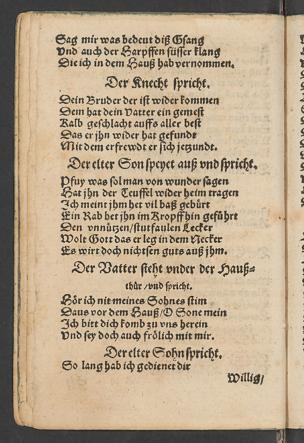 Sag mir was bedeut diß Gsang
Vnd auch der Harpffen süsser klang
Die ich in dem Hauß hab vernommen.
Der Knecht spricht.
Dein Bruder der ist wider kommen
Dem hat dein Vatter ein gemest
Kalb geschlacht auffs aller best
Das er jhn wider hat gefundē
Mit dem erfrewdt er sich jetzundt.
Der elter Son speyet auß vnd spricht.
Pfuy was sol man von wunder sagen
Hat jhn der Teuffel wider heim tragen
Ich meint jhm het vil baß gebürt
Ein Rab het jhn im Kropff hin geführt
Den vnnützen/stutfaulen Lecker
Wolt Gott das er leg in dem Necker
Es wirt doch nichtsen guts auß jhm.
Der Vatter steht vnder der Hauß-
thür/vnd spricht.
Hör ich nit meines Sohnes stim
Daus vor dem Hauß/O Sone mein
Ich bitt dich komb zu vns herein
Vnd sey doch auch frölich mit mir.
Der elter Sohn spricht.
So lang hab ich gedienet dir
Willig/